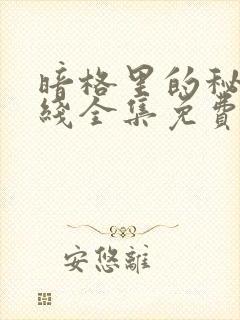 暗格里的秘
线全集免費
安悠離